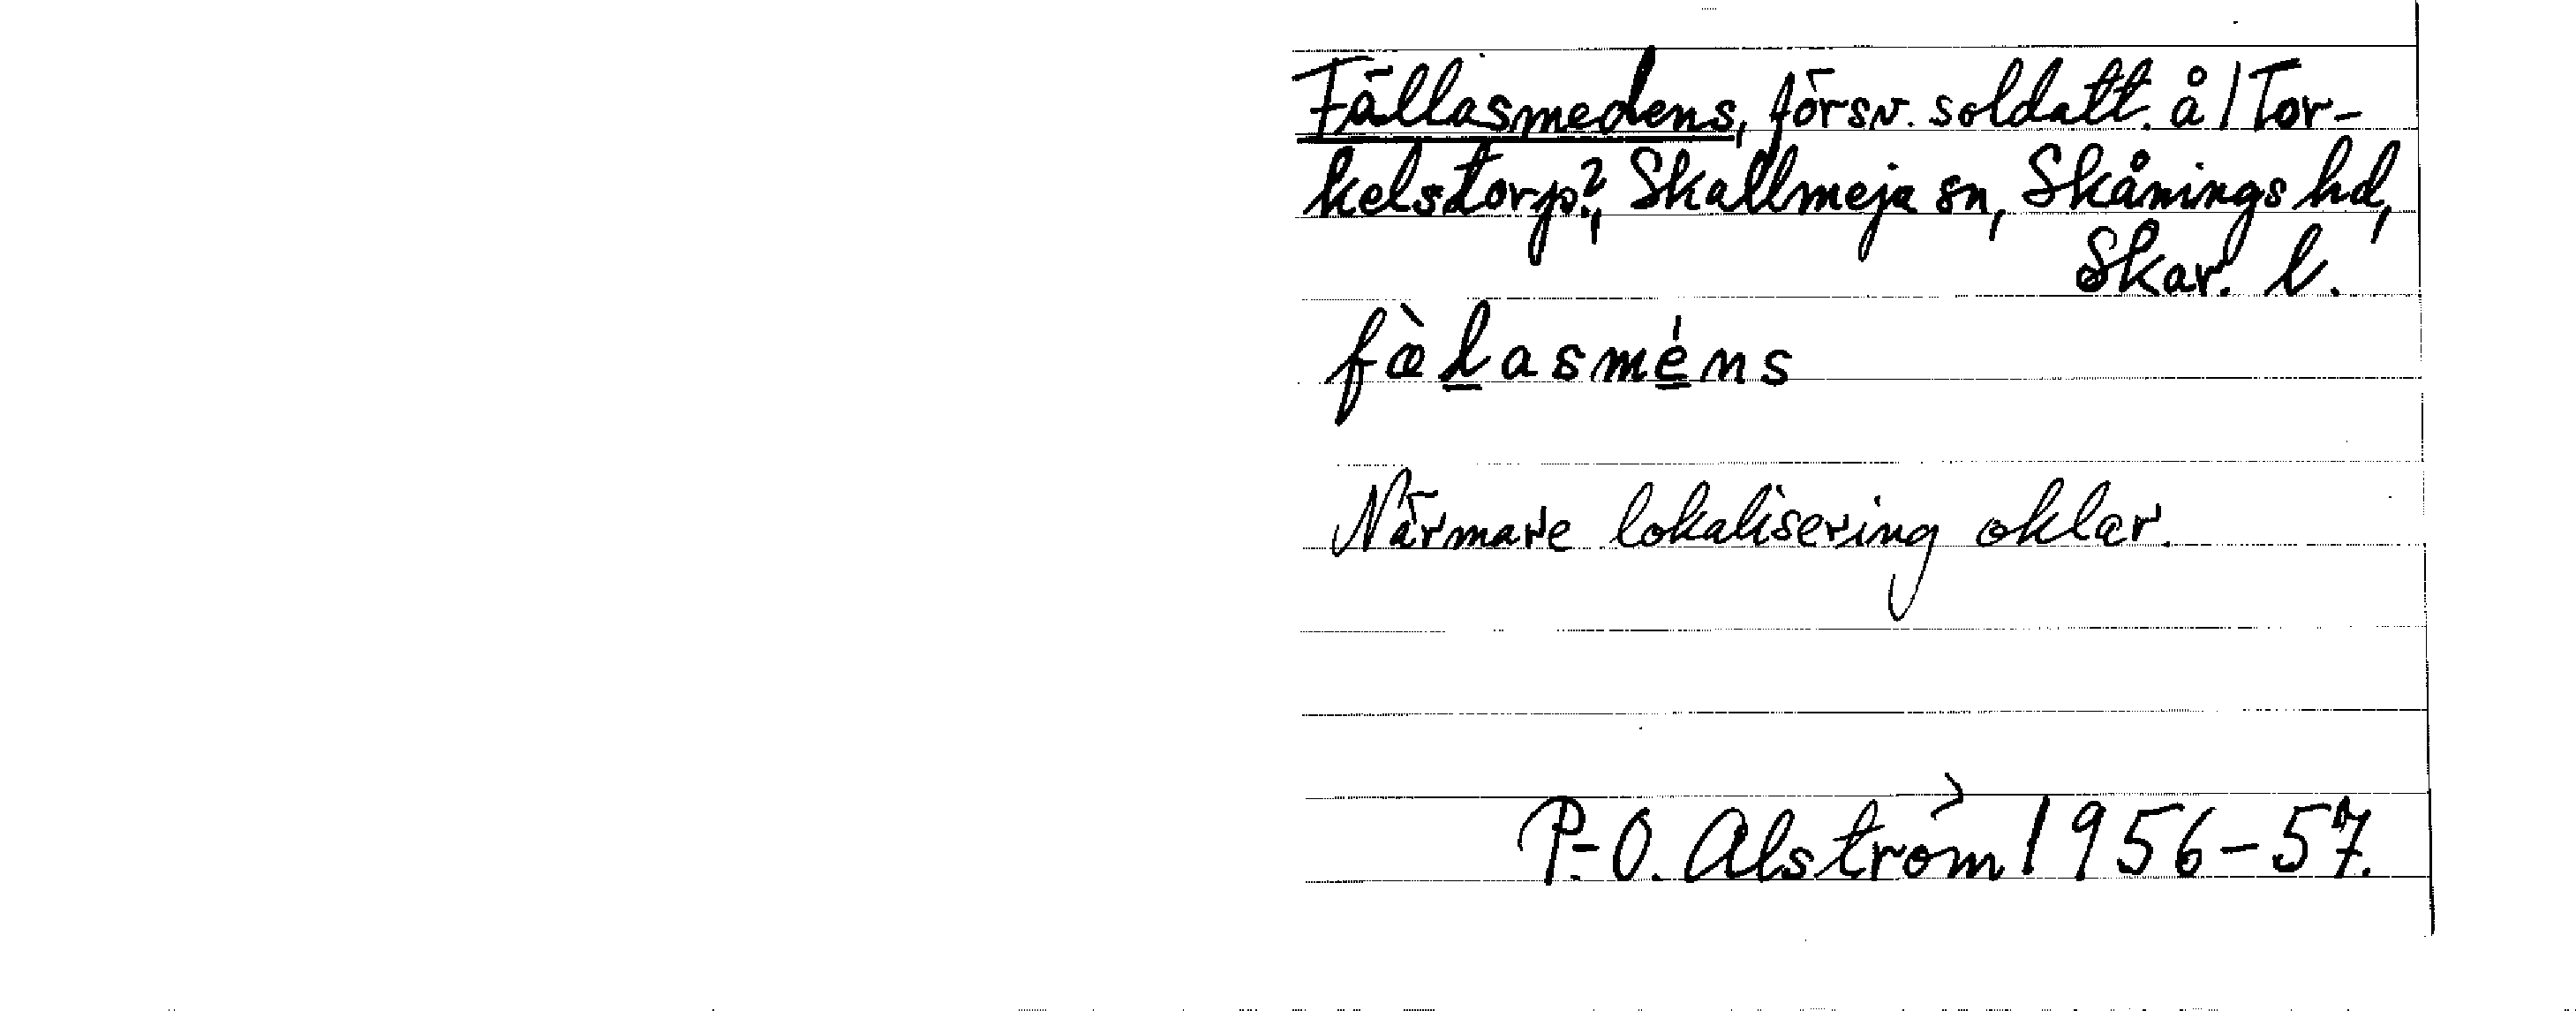 Fällasmedens, försv. soldatt. å / Tor-
kelstorp?, Skallmeja sn, Skånings hd,
Skar. l.
fæ̀l̲asmé̲ns
Närmare lokalisering oklar.
P.-O. Alström 1956-57.